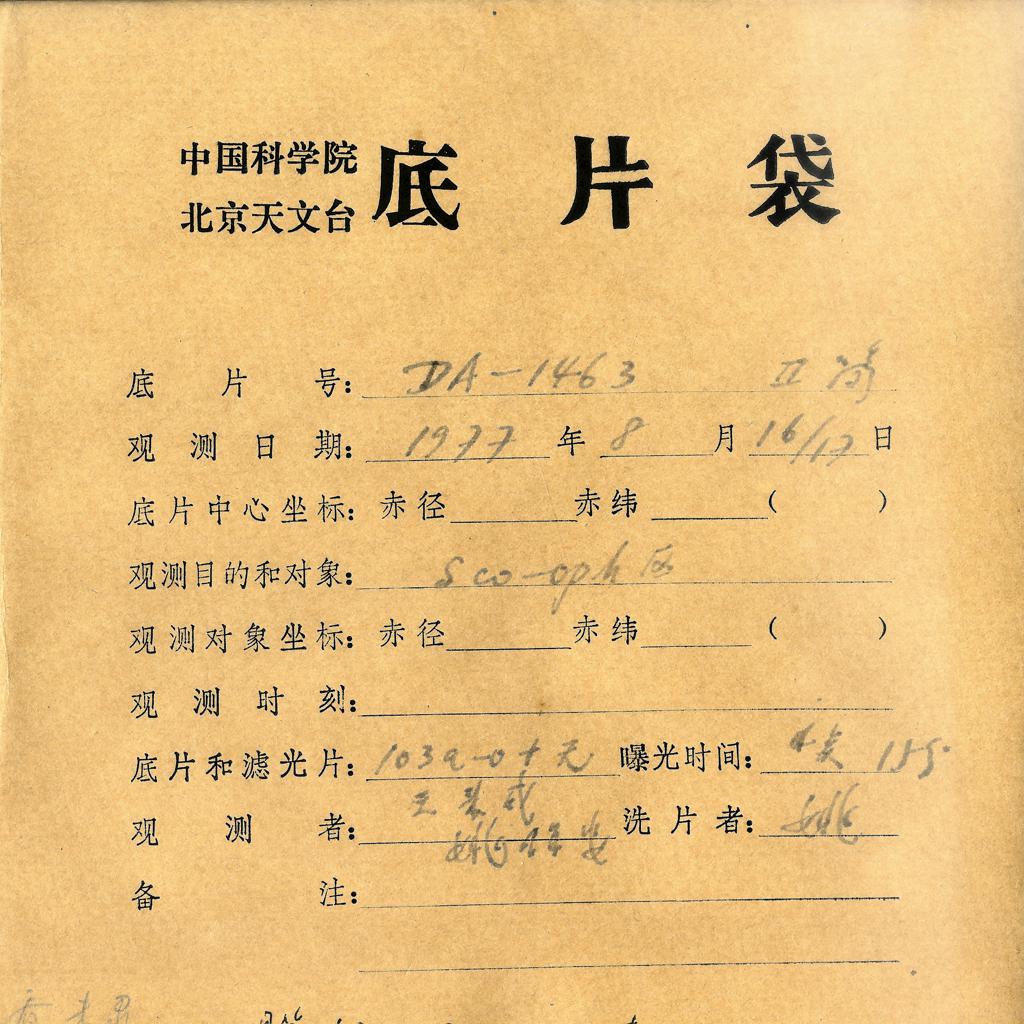 中国科学院
北京天文台
底片袋
底片号： DA-1463 II
观测日期： 1977 年 8 月 16/17 日
底片中心坐标： 赤径 赤纬 ( )
观测目的和对象： Sco-oph 区
观测对象坐标： 赤径 赤纬 ( )
观测时刻：
底片和滤光片： 103a-0+无 曝光时间： 15
观测者： 王 姚 洗片者： 姚
备注：